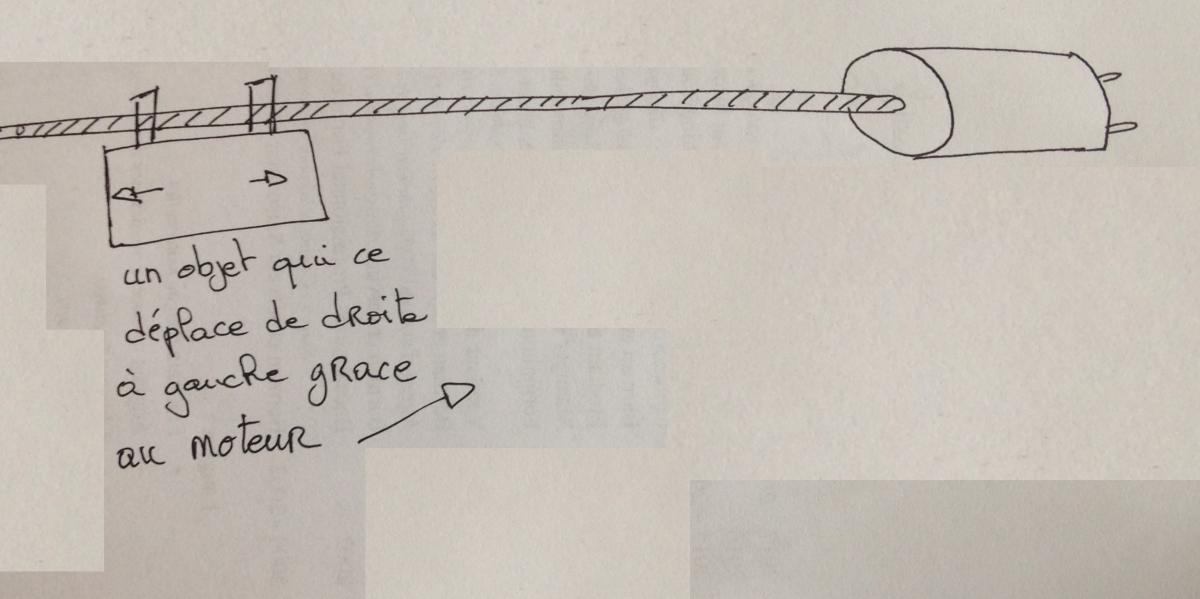 un objet qui ce
déplace de droite
à gauche grace
au moteur